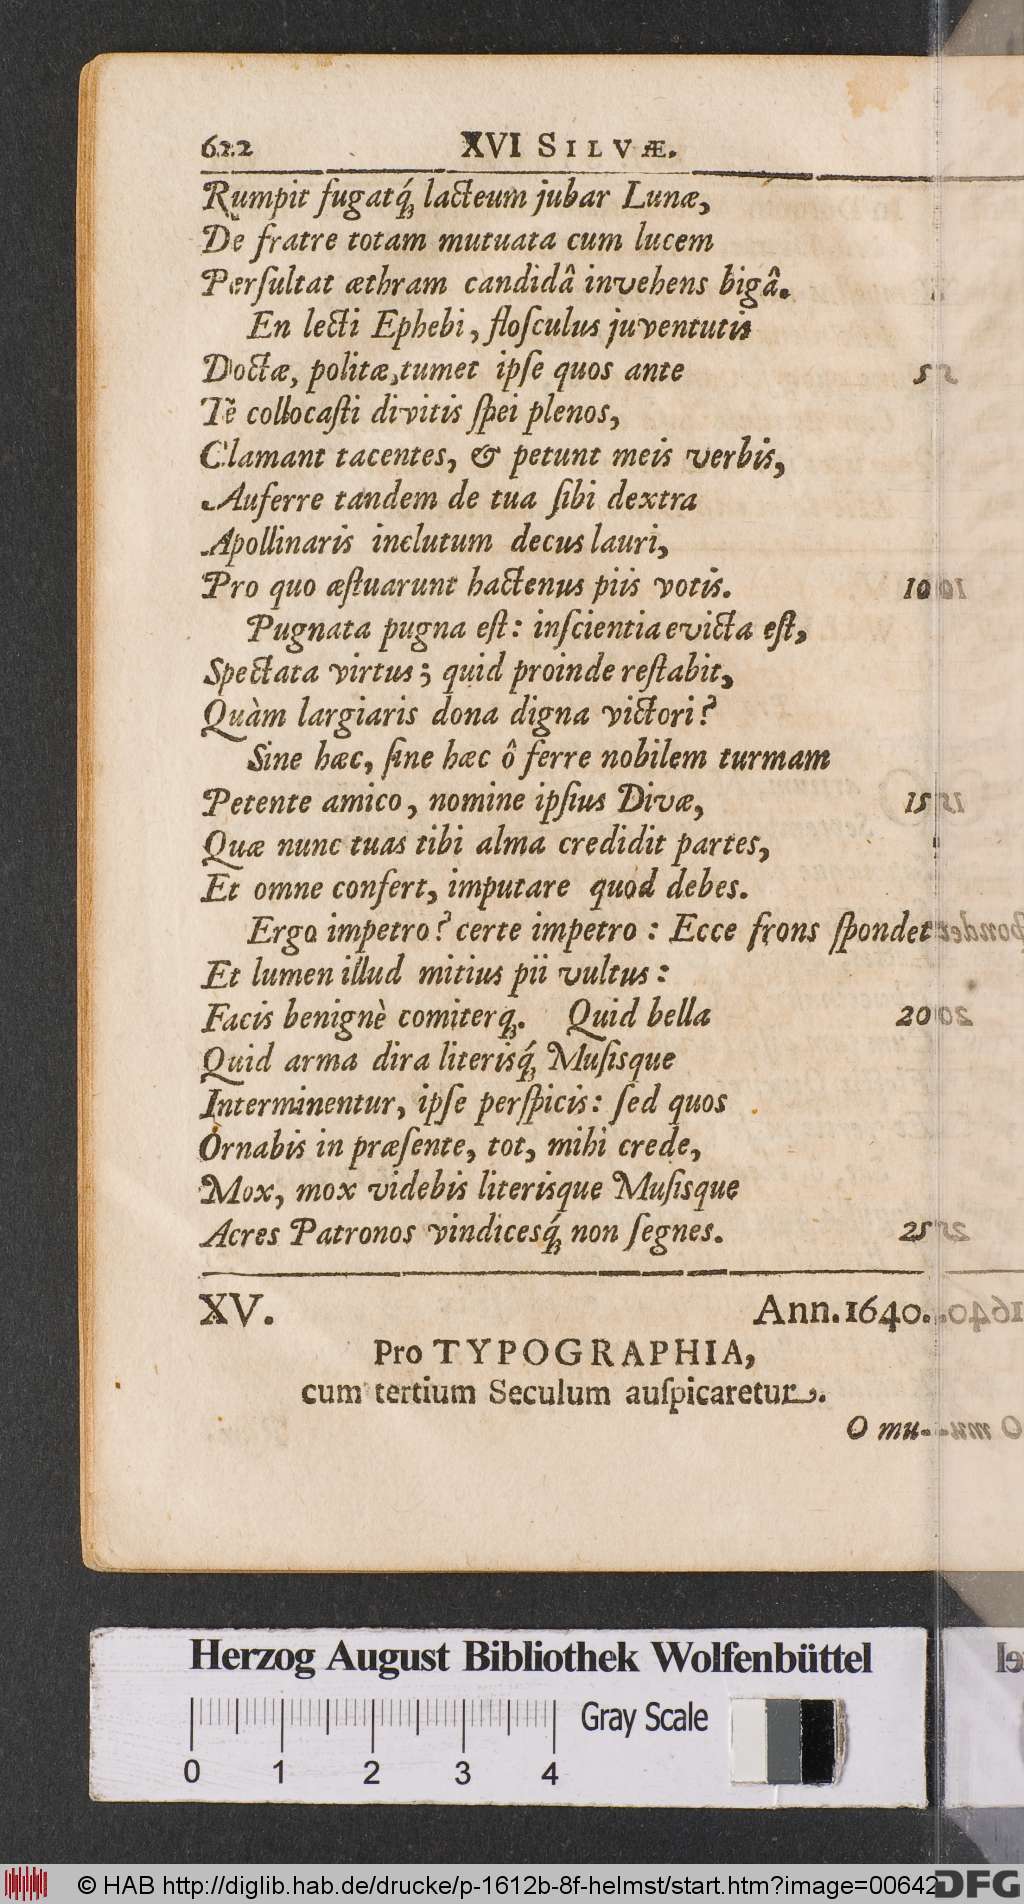 622 XVI SILVÆ.
Rumpit fugatq́; lacteum jubar Lunæ,
De fratre totam mutuata cum lucem
Perſultat æthram candidâ invehens bigâ.
En lecti Ephebi, floſculus juventutis
Doctæ, politæ, tumet ipſe quos ante 5
Tê collocaſti divitis ſpei plenos,
Clamant tacentes, & petunt meis verbis,
Auferre tandem de tua ſibi dextra
Apollinaris inclutum decus lauri,
Pro quo æſtuarunt hactenus piis votis. 10
Pugnata pugna eſt: inſcientia evicta eſt,
Spectata virtus; quid proinde reſtabit,
Quàm largiaris dona digna victori?
Sine hæc, ſine hæc ô ferre nobilem turmam
Petente amico, nomine ipſius Divæ, 15
Quæ nunc tuas tibi alma credidit partes,
Et omne confert, imputare quod debes.
Ergo impetro? certe impetro: Ecce frons ſpondet
Et lumen illud mitius pii vultus:
Facis benignè comiterq;. Quid bella 20
Quid arma dira literisq́; Muſisque
Interminentur, ipſe perſpicis: ſed quos
Ornabis in præſente, tot, mihi crede,
Mox, mox videbis literisque Muſisque
Acres Patronos vindicesq́; non ſegnes. 25
XV. Ann. 1640.
Pro TYPOGRAPHIA,
cum tertium Seculum auſpicaretur.
O mu-
Herzog August Bibliothek Wolfenbüttel
Gray Scale
0 1 2 3 4
© HAB http://diglib.hab.de/drucke/p-1612b-8f-helmst/start.htm?image=00642
DFG